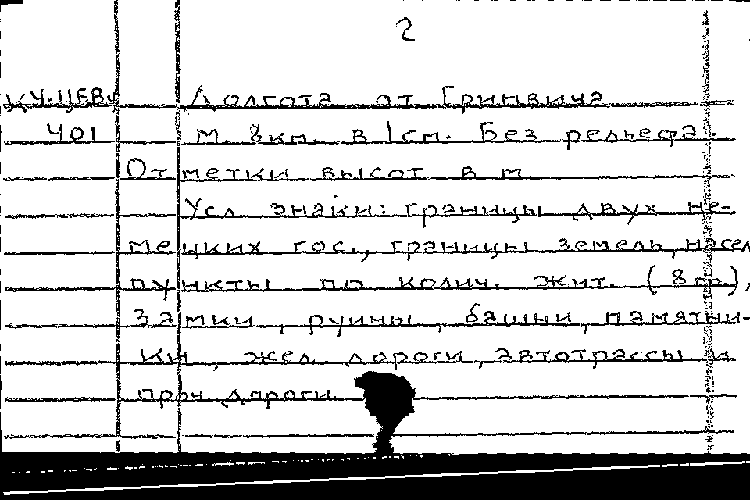 2
Долгота от Гринвича
401 м. 8км. в 1см. Без рельефа.
Отметки высот в м
Усл знаки: границы двух не-
мецких гос., границы земель, насел
пункты по колич. жит. (8 гр.),
замки, руины, башни, памятни-
ки, жел дороги, автотрассы и
проч дороги